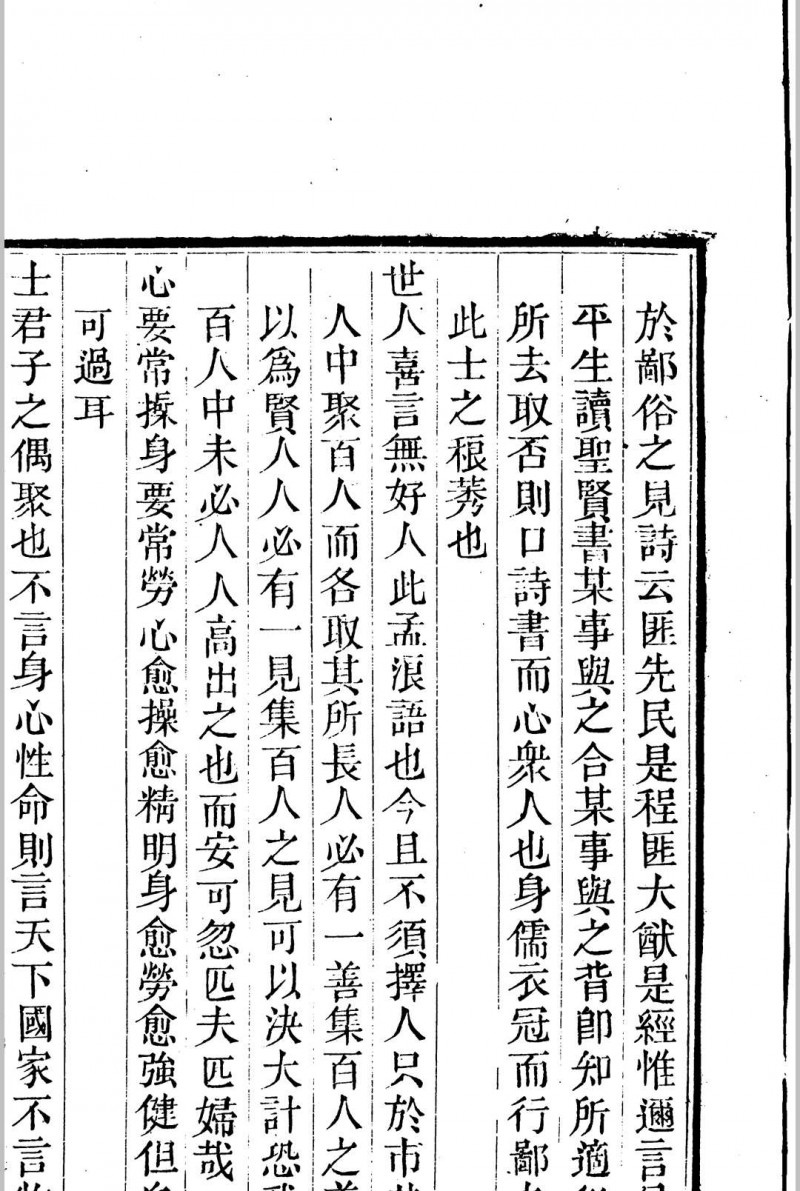 於鄙俗之見詩云匪先民是程匪大猷是經惟邇言
平生讀聖賢書某事與之合某事與之背卽知所適
所去取否則口詩書而心衆人也身儒衣冠而行鄙
此士之稂莠也
世人喜言無好人此孟浪語也今且不須擇人只於市
人中聚百人而各取其所長人必有一善集百人之善
以爲賢人人必有一見集百人之見可以決大計恐
百人中未必人人高出之也而安可忽匹夫匹婦哉
心要常操身要常勞心愈操愈精明身愈勞愈強健但
可過耳
士君子之偶聚也不言身心性命則言天下國家不言